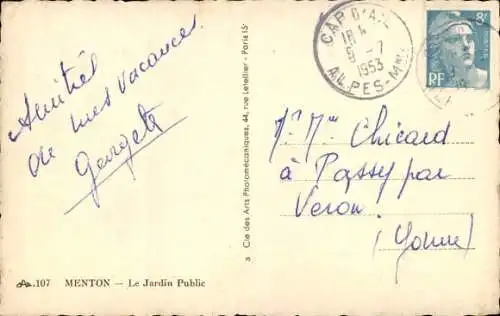 Amitiés
de mes vacances
Georgete
107 MENTON — Le Jardin Public
Cie des Arts Photomécaniques, 44, rue Letellier - Paris 15e
CAP D'AIL
18
-7
1953
ALPES-Mmes
8F
RF
Mr Mme Chicard
à Passy par
Veron.
(Yonne)